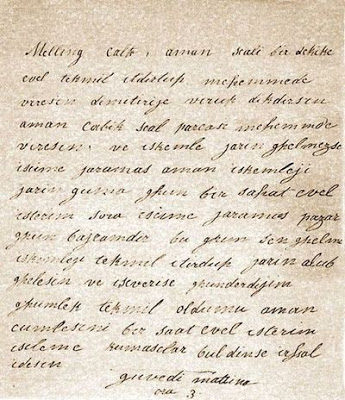 Melling Calfa, aman scali bir dekike
evel tekmil itdirtup mehemmede
viresen dimitrije verup dikdirsen
aman Cablik scal parcase mehemmde
viresen, ve iskemle jarin ghelmezse
iscime jaramas aman iskemleji
jarin guma ghun bir sahat evel
isterim sora iscime jaramas pazar
ghun bajramder bu ghun sen ghelme
iskemleji tekmil itirdup jarin alub
ghelesen ve isverise ghunderdijim
ghumlek tekmil oldumu aman
cumlesini bir saat evel isterim
isleme kumasclar buldinse irsal
idesen
giuvedi mattina
ora 3.